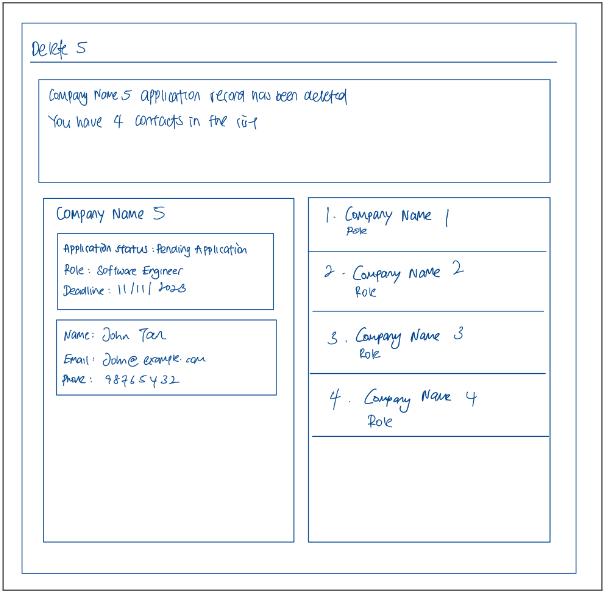 Delete 5
Company Name 5 application record has been deleted
You have 4 contacts in the list
Company Name 5
Application Status : Pending Application
Role : Software Engineer
Deadline : 11/11/2023
Name : John Tan
Email : John@example.com
Phone : 98765432
1. Company Name 1
Role
2. Company Name 2
Role
3. Company Name 3
Role
4. Company Name 4
Role